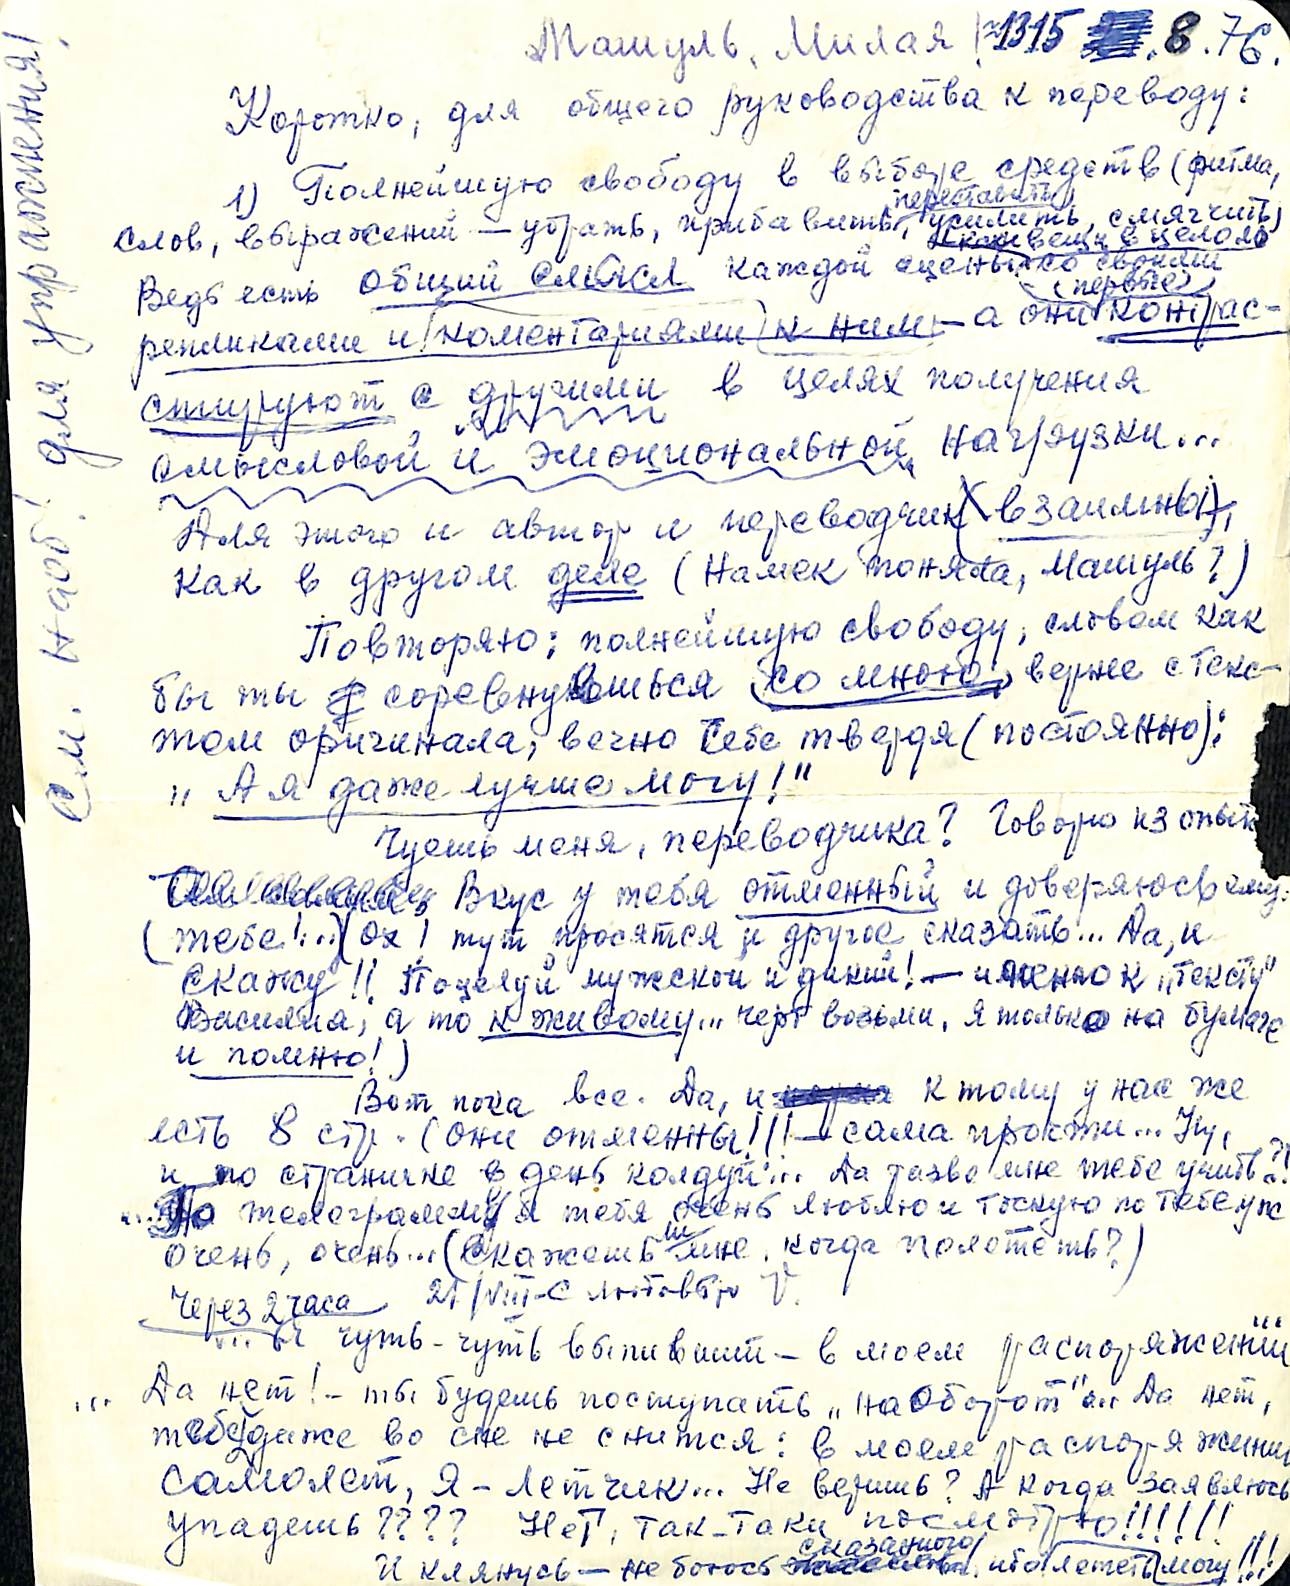 Машуль, Милая! №1315 .8.76.
Коротко, для общего руководства к переводу:
1) Полнейшую свободу в выборе средств (ритма,
слов, выражений — убрать, прибавить, переставить, усилить, смягчить)
Ведь есть общий смысл каждой сцены, как вещи в целом со своими
репликами и коментариями к ним — а они (первые) контрас-
стируют с другими в целях получения
смысловой и эмоциональной нагрузки...
Для этого и автор и переводчик взаимны,
как в другом деле (Намек поняла, Машуль?)
Повторяю: полнейшую свободу, словом как
бы ты соревнуешься со мною, верне с текс-
том оригинала, вечно Себе твердя (постоянно):
"А я даже лучше могу!"
Чуешь меня, переводчика? Говорю из опыта
Вкус у тебя отменный и доверяюсь ему.
(тебе!...) (ох! тут просятся и другое сказать... Да, и
скажу!! Поцелуй мужской и дикий! — именно к "тексту"
Василия, а то к живому... черт возьми, я только на бумаге
и помню!)
Вот пока все. Да, и к тому у нас же
есть 8 стр. (они отменны!!! — сама прочти... Ну,
и по страничке в день колдуй... Да разве мне тебе учить?!
...По телеграмму я тебя очень люблю и тоскую по Тебе уж
очень, очень... (Скажешь мне, когда полететь?)
21/VIII С любовью V.
Через 2 часа
... чуть-чуть выпивши — в моем распоряжении
... Да нет! — ты будешь поступать "наоборот"... Да нет,
тебе даже во сне не снится: в моем распоряжении
самолет, я — летчик... Не веришь? А когда заявлюсь
упадешь???? Нет, так-таки посмотрю!!!!!!
И клянусь — не боюсь сказанного, ибо летать могу!!!
См. наоб! для упражнения!